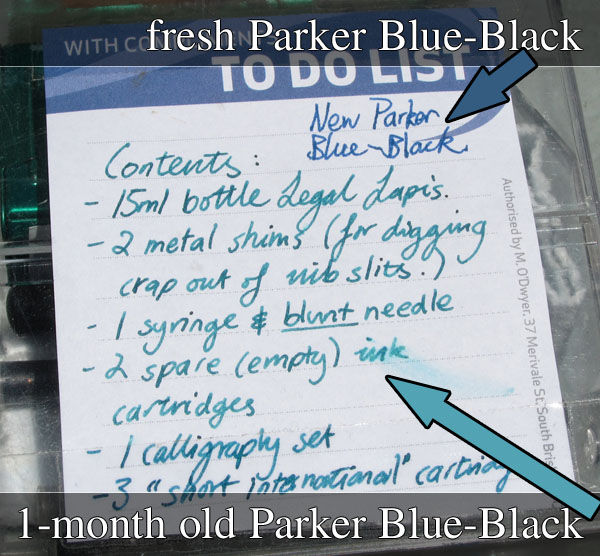 fresh Parker Blue-Black
WITH COMPLIMENTS
TO DO LIST
New Parker
Blue-Black
Contents:
- 15ml bottle Legal Lapis.
- 2 metal shims (for digging
crap out of nib slits.)
- 1 syringe & blunt needle
- 2 spare (empty) ink
cartridges
- 1 calligraphy set
- 3 "short international"
Authorised by M. O'Dwyer, 37 Merivale St. South
1-month old Parker Blue-Black